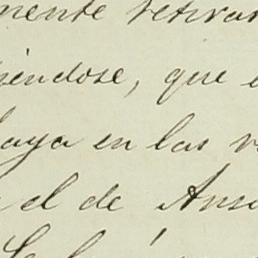 mente retirar
iéndose, que e
haya en las v
el de Ans